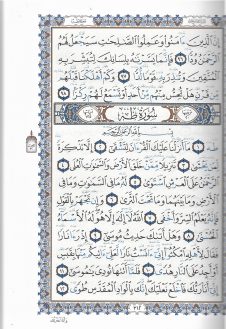 إِنَّ ٱلَّذِينَ ءَامَنُوا۟ وَعَمِلُوا۟ ٱلصَّـٰلِحَـٰتِ سَيَجْعَلُ لَهُمُ
ٱلرَّحْمَـٰنُ وُدًّا ٩٦ فَإِنَّمَا يَسَّرْنَـٰهُ بِلِسَانِكَ لِتُبَشِّرَ بِهِ
ٱلْمُتَّقِينَ وَتُنذِرَ بِهِۦ قَوْمًا لُّدًّا ٩٧ وَكَمْ أَهْلَكْنَا قَبْلَهُم
مِّن قَرْنٍ هَلْ تُحِسُّ مِنْهُم مِّنْ أَحَدٍ أَوْ تَسْمَعُ لَهُمْ رِكْزًا ٩٨
سُورَةُ طه
بِسْمِ ٱللَّهِ ٱلرَّحْمَـٰنِ ٱلرَّحِيمِ
طه ١ مَآ أَنزَلْنَا عَلَيْكَ ٱلْقُرْءَانَ لِتَشْقَىٰٓ ٢ إِلَّا تَذْكِرَةً
لِّمَن يَخْشَىٰ ٣ تَنزِيلًا مِّمَّنْ خَلَقَ ٱلْأَرْضَ وَٱلسَّمَـٰوَٰتِ ٱلْعُلَى ٤
ٱلرَّحْمَـٰنُ عَلَى ٱلْعَرْشِ ٱسْتَوَىٰ ٥ لَهُۥ مَا فِى ٱلسَّمَـٰوَٰتِ وَمَا فِى
ٱلْأَرْضِ وَمَا بَيْنَهُمَا وَمَا تَحْتَ ٱلثَّرَىٰ ٦ وَإِن تَجْهَرْ بِٱلْقَوْلِ
فَإِنَّهُۥ يَعْلَمُ ٱلسِّرَّ وَأَخْفَى ٧ ٱللَّهُ لَآ إِلَـٰهَ إِلَّا هُوَ لَهُ ٱلْأَسْمَآءُ
ٱلْحُسْنَىٰ ٨ وَهَلْ أَتَىٰكَ حَدِيثُ مُوسَىٰٓ ٩ إِذْ رَءَا نَارًا
فَقَالَ لِأَهْلِهِ ٱمْكُثُوٓا۟ إِنِّىٓ ءَانَسْتُ نَارًا لَّعَلِّىٓ ءَاتِيكُم مِّنْهَا بِقَبَسٍ
أَوْ أَجِدُ عَلَى ٱلنَّارِ هُدًى ١٠ فَلَمَّآ أَتَىٰهَا نُودِىَ يَـٰمُوسَىٰٓ ١١
إِنِّىٓ أَنَا۠ رَبُّكَ فَٱخْلَعْ نَعْلَيْكَ إِنَّكَ بِٱلْوَادِ ٱلْمُقَدَّسِ طُوًى ١٢
٣١٢